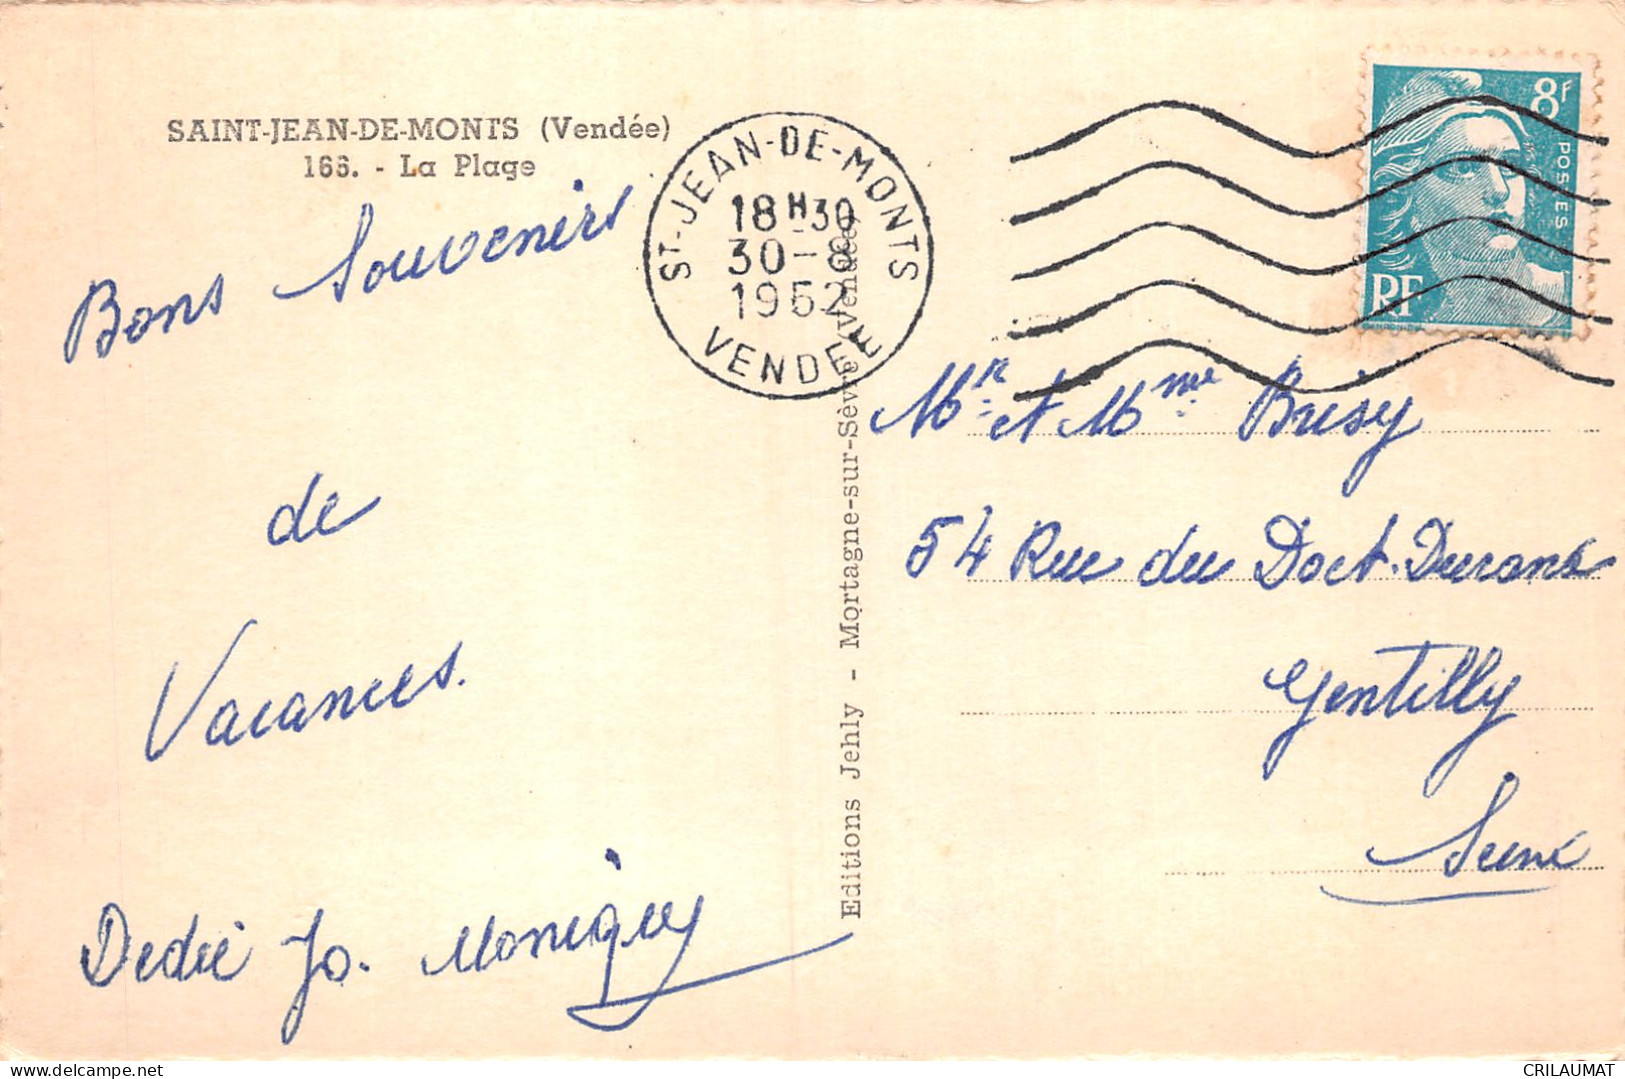 SAINT-JEAN-DE-MONTS (Vendée)
166. - La Plage
ST-JEAN-DE-MONTS
18H30
30-8
1952
VENDEE
8f
POSTES
RF
Bons Souvenirs
de
Vacances.
Dédé Jo. Monique
Editions Jehly - Mortagne-sur-Sèvre (Vendée)
Mr et Mme Brisy
54 Rue du Doct. Durand
Gentilly
Seine
CRILAUMAT